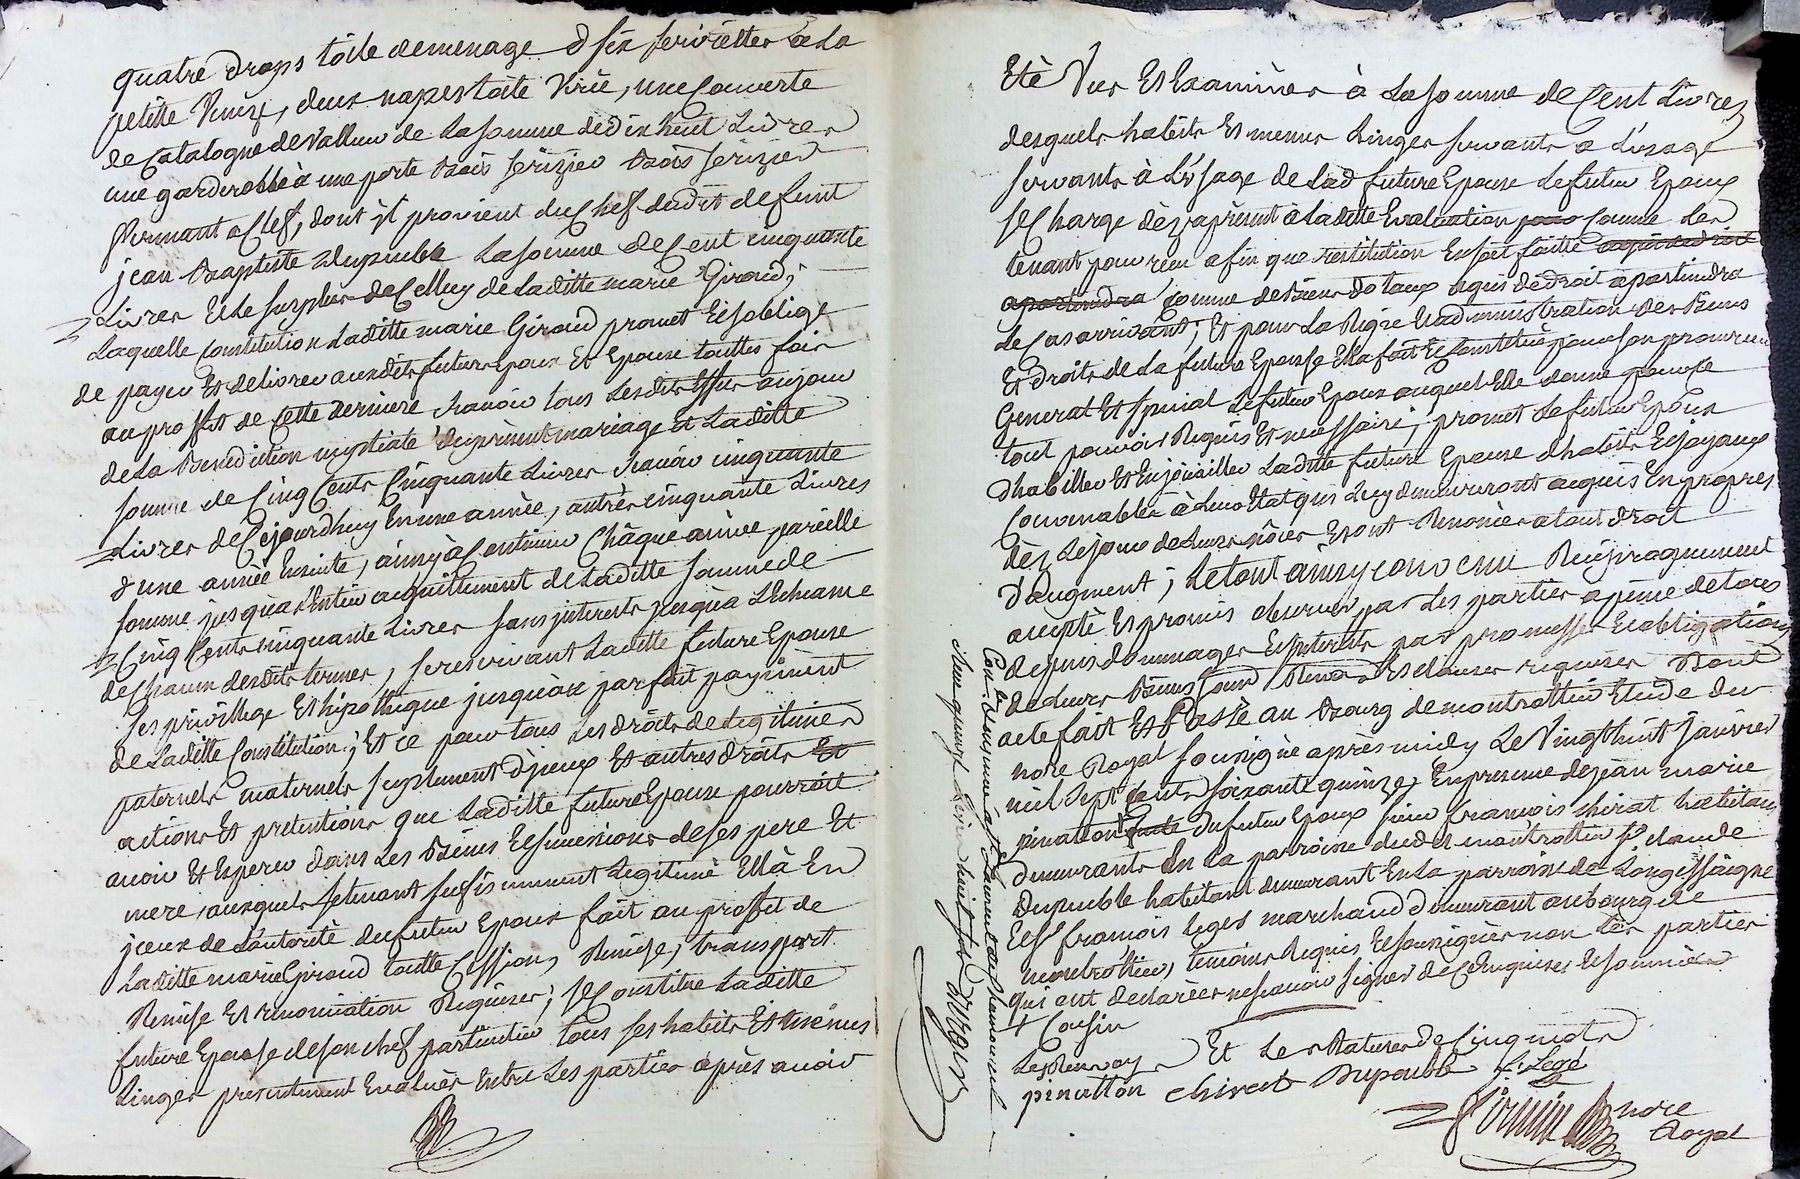 quatre draps toile demenage & six serviettes a la
petitte Venize, deux napes toile Virée, une Couverte
de Catalogne de Valleur de La somme dedixhuit Livres
une garderobbe à une porte bois serizier bois serizier
fermant a Clef, dont il provient du Chef dudit defunt
jean Baptiste Dupuble La somme de Cent cinquante
Livres Et le surplus de Celluy de Laditte marie Giroud;
Laquelle Constitution Laditte marie Giroud promet Et soblige
de payer Et delivrer auxdits futurs Epoux Et Epouse touttes fois
au proffit de Cette derniere scavoir tous Lesdits Effets au jour
de La Benediction nuptiale du present mariage et Laditte
somme de Cinq Cents Cinquante Livres scavoir cinquante
Livres de Cejourdhuy En une année, autres cinquante Livres
d une année Ensuite, ainsy à Continuer Chaque année pareille
somme jusqua Lentier acquittement de Laditte somme de
Cinq Cents cinquante Livres sans interests jusqua LEcheance
de Chacun desdits termes, se reservant Laditte future Epouse
ses privillege Et hipotheque jusquau parfait payement
de Laditte Constitution; Et ce pour tous Les droits de Legitimes
paternels maternels suplement dyceux Et autres droits Et
actions Et pretentions que Laditte future Epouse pourroit
avoir Et Esperer dans Les Biens Et successions de ses pere Et
mere, auxquels se tenant suffisamment Legitimé Ella En
iceux de Lautorité du futur Epoux fait au proffit de
Laditte marie Giroud toutte Cession, Remise, transport
Remise Et renonciation Requises; se Constitue Laditte
future Epouse de son chef particulier tous ses habits Et menus
Linges presentement Evalués Entre Les parties après avoir
Eté Vus Et Examinés à La somme de Cent Livres
desquels habits Et menus Linges servants a Lusage
servants à L'usage de Lad future Epouse Le futur Epoux
se Charge dès apresent à Laditte Evaluation pour Comme Les
tenant pour reçu afin que restitution En soit faitte aquidedroit
apartiendra Comme de Biens Dotaux aqui de droit apartiendra
Le Cas arrivant; Et pour La Regie Et administration des Biens
Et droits de La future Epouse Ella fait Et Constitué pour son procureur
General Et special Le futur Epoux auquel Elle donne pouvoir
tout pouvoir Requis Et necessaire; promet Le futur Epoux
dhabiller Et Enjoailler Laditte future Epouse dhabits Et joyaux
Convenables à Leur Etat qui Luy demeureront acquis En propres
dès Le jour de Leurs nôces Et ont Renoncés a tout droit
d'augment; Le tout ainsy convenu Reciproquement
accepté Et promis observer par Les parties a peine de tous
depens dommages Et interets par promesses Et obligations
de Leurs Biens soumis Renonc Et clauses requises Dont
acte fait Et Passé au Bourg de montrottier Etude du
nore Royal soussigné après midy Le Vingthuit Janvier
mil sept cents soixante quinze, En presence de jean marie
pinatton du futur Epoux sieur francois chirat habitans
demeurants En La parroisse dudit montrottier sr claude
Dupuble habitant demeurant En La parroisse de Longessaigne
Et sr francois Leges marchand demeurant au bourg de
montrottier, temoins Requis Et soussignés non Les parties
qui ont declarées ne scavoir signer de Ce Enquises Et sommées
+ Cousin
Le Renvoy Et Les Ratures de Cinq mots
pinatton chirat Dupuble f: Legé
nore
Royal